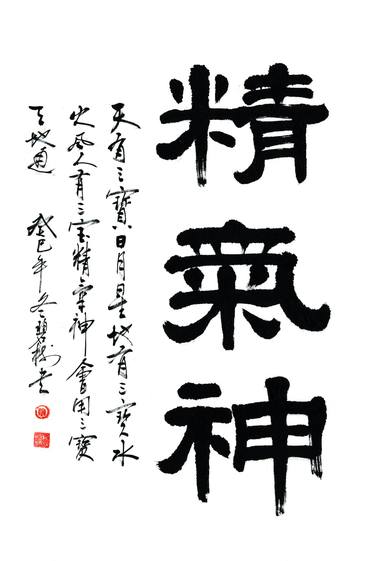 精氣神
天有三寶日月星地有三寶水
火風人有三宝精氣神會用三寶
天地通 癸巳年冬